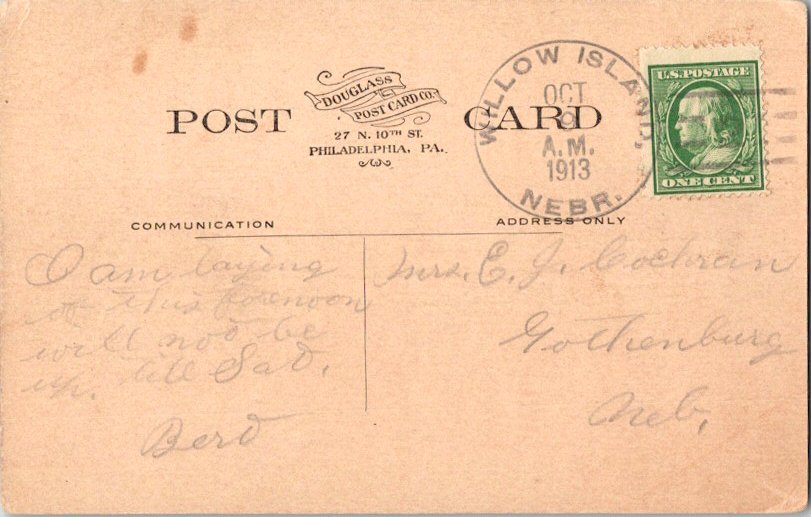 POST CARD
DOUGLASS
POST CARD CO.
27 N. 10TH ST.
PHILADELPHIA, PA.
WILLOW ISLAND,
OCT
9
A.M.
1913
NEBR.
U.S. POSTAGE
ONE CENT
COMMUNICATION
ADDRESS ONLY
I am laying
this forenoon
will not be
up. till Sat.
Bert
Mrs. E. J. Cochran
Gothenburg
Neb.